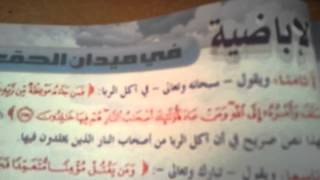 لإباضية
في ميدان الحق
ثامنا: ويقول - سبحانه وتعالى - في آكل الربا: ﴿ فمن جاءه موعظة من ربه
سلف وأمره إلى الله ومن عاد فأولئك أصحاب النار هم فيها خالدون ﴾
هذا نص صريح في أن آكل الربا من أصحاب النار الذين يخلدون فيها.
ويقول - تبارك وتعالى -: ﴿ ومن يقتل مؤمنا متعمدا